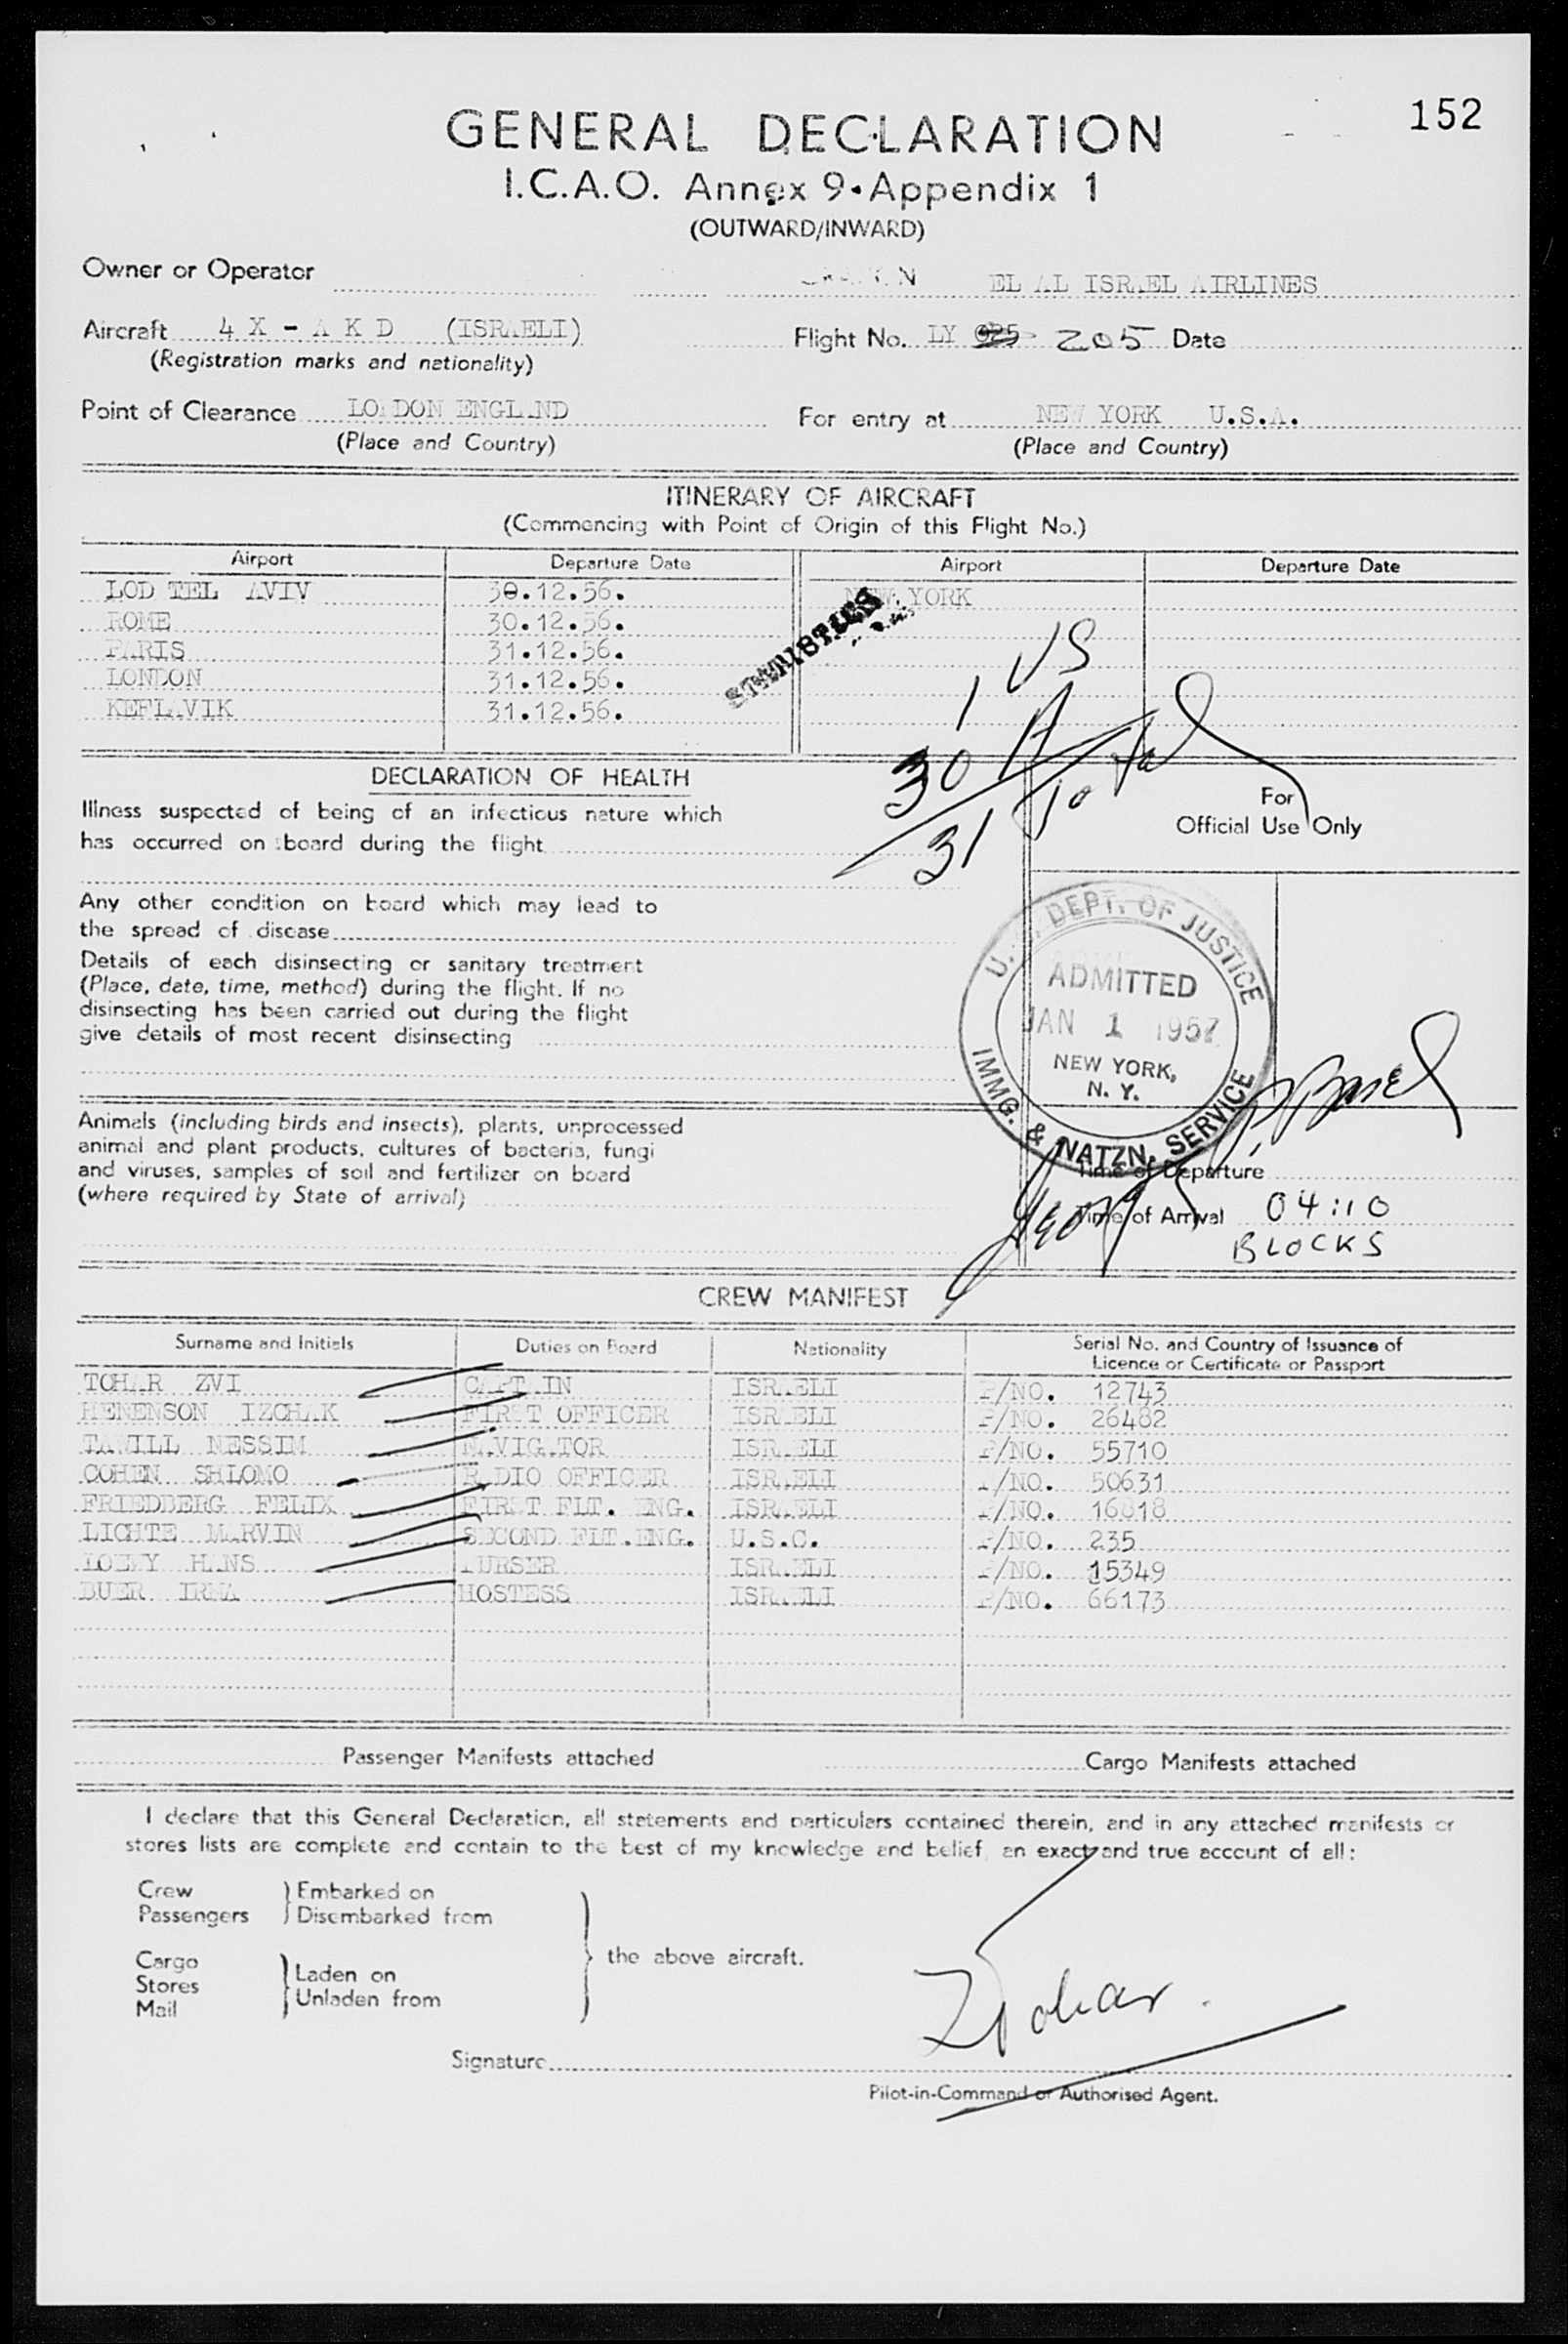 152
GENERAL DECLARATION
I.C.A.O. Annex 9 • Appendix 1
(OUTWARD/INWARD)
Owner or Operator EL AL ISRAEL AIRLINES
Aircraft 4 X - A K D (ISRAELI) Flight No. LY 205 Date
(Registration marks and nationality)
Point of Clearance LONDON ENGLAND For entry at NEW YORK U.S.A.
(Place and Country) (Place and Country)
ITINERARY OF AIRCRAFT
(Commencing with Point of Origin of this Flight No.)
Airport Departure Date Airport Departure Date
LOD TEL AVIV 30.12.56. NEW YORK
ROME 30.12.56.
PARIS 31.12.56.
LONDON 31.12.56.
KEFLAVIK 31.12.56.
STATISTICS
1 US
30 A
31 Total
DECLARATION OF HEALTH
Illness suspected of being of an infectious nature which
has occurred on board during the flight
Any other condition on board which may lead to
the spread of disease
Details of each disinsecting or sanitary treatment
(Place, date, time, method) during the flight. If no
disinsecting has been carried out during the flight
give details of most recent disinsecting
Animals (including birds and insects), plants, unprocessed
animal and plant products, cultures of bacteria, fungi
and viruses, samples of soil and fertilizer on board
(where required by State of arrival)
For
Official Use Only
U. S. DEPT. OF JUSTICE
ADMITTED
JAN 1 1957
NEW YORK,
N. Y.
IMMG. & NATZN. SERVICE
Time of Departure
Time of Arrival 04:10
BLOCKS
CREW MANIFEST
Surname and Initials Duties on Board Nationality Serial No. and Country of Issuance of
Licence or Certificate or Passport
TOHAR ZVI CAPTAIN ISRAELI P/NO. 12743
HENENSON IZCHAK FIRST OFFICER ISRAELI P/NO. 26482
TAWILL NESSIM NAVIGATOR ISRAELI P/NO. 55710
COHEN SHLOMO RADIO OFFICER ISRAELI P/NO. 50631
FRIEDBERG FELIX FIRST FLT. ENG. ISRAELI P/NO. 16818
LICHTE MARVIN SECOND FLT.ENG. U.S.C. P/NO. 235
LOEWY HANS PURSER ISRAELI P/NO. 15349
DUER IRMA HOSTESS ISRAELI P/NO. 66173
Passenger Manifests attached Cargo Manifests attached
I declare that this General Declaration, all statements and particulars contained therein, and in any attached manifests or
stores lists are complete and contain to the best of my knowledge and belief, an exact and true account of all:
Crew
Passengers
Embarked on
Disembarked from
Cargo
Stores
Mail
Laden on
Unladen from
the above aircraft.
Z Tohar.
Signature
Pilot-in-Command or Authorised Agent.